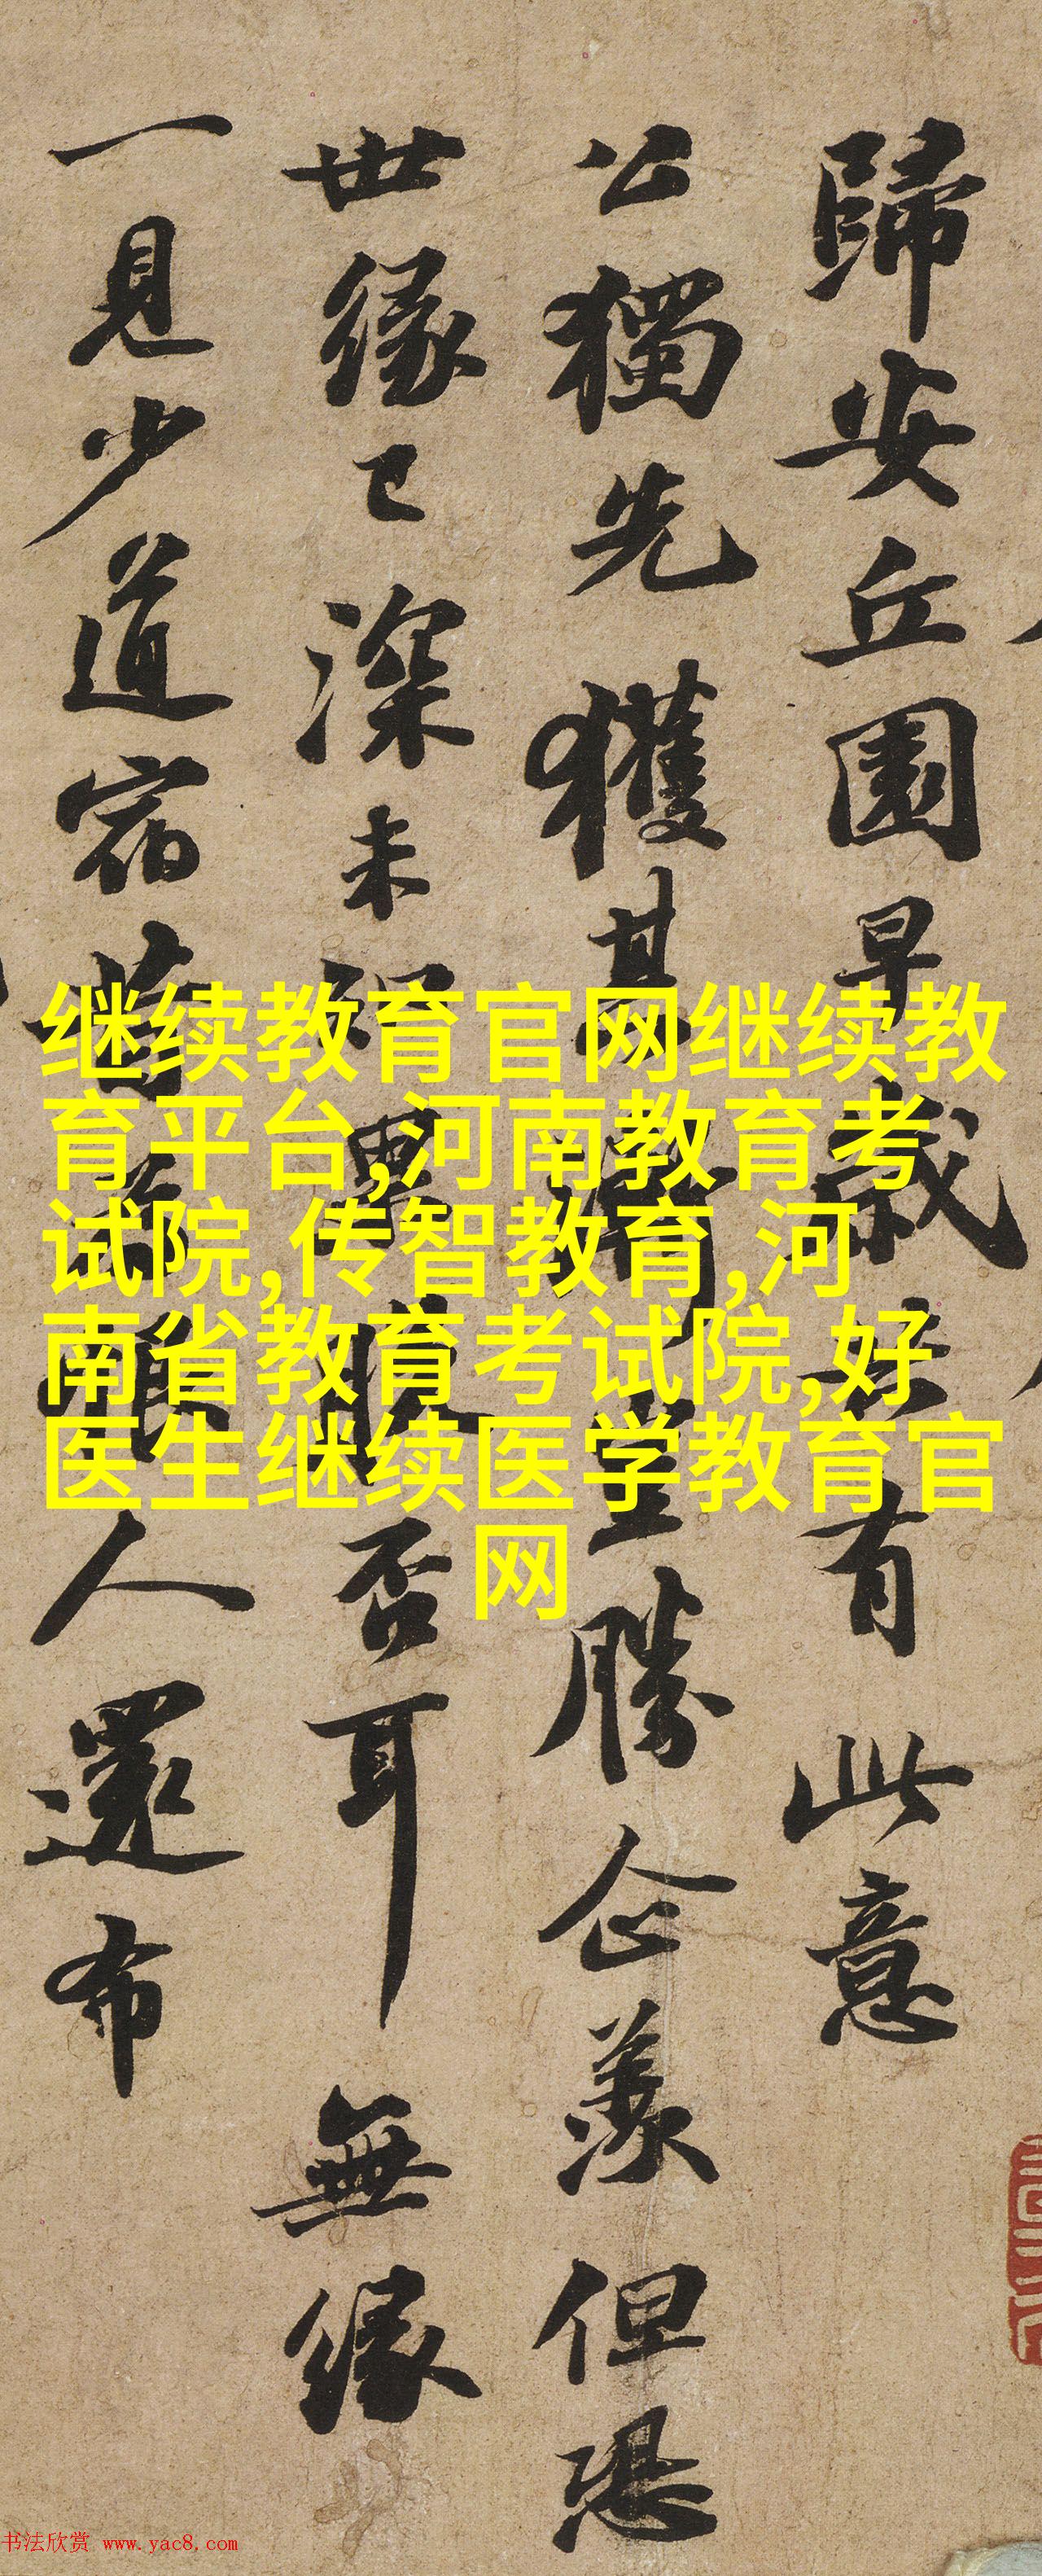 歸安丘園早歲共有此意
公獨先獲其漸豈勝企羨但恐
世緣已深未知果脫否耳無緣
一見少道宿昔為恨人還布
继续教育官网继续教
育平台,河南教育考
试院,传智教育,河
南省教育考试院,好
医生继续医学教育官
网
书法欣赏 www.yac8.com